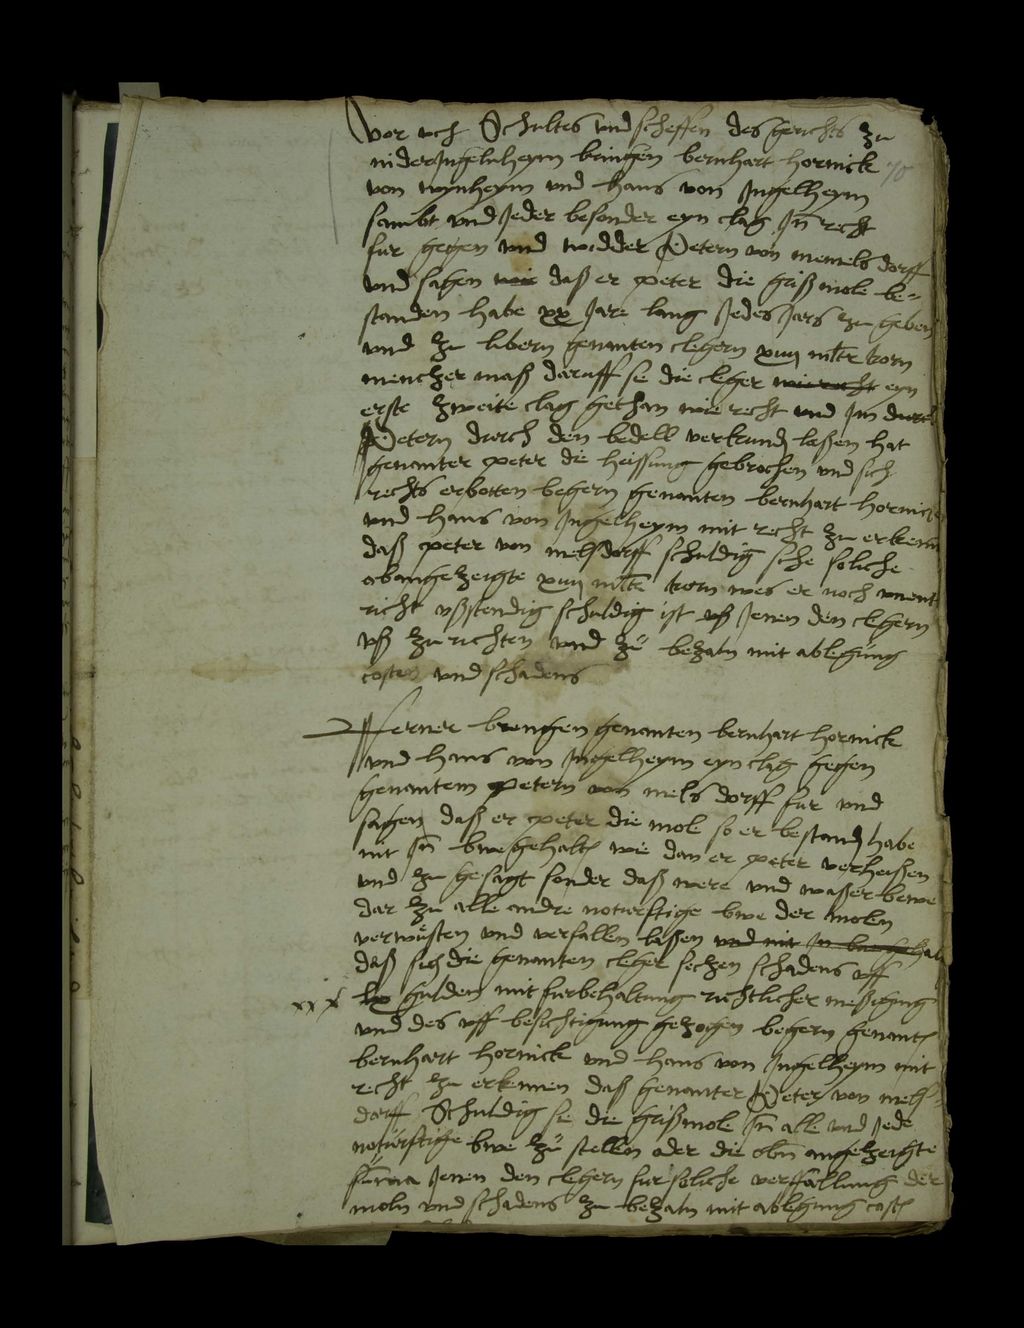 Vor uch Schultes und scheffen des gerichts zu
nider Ingelnheym bringen bernhart hornick
70
von wynheym und hans von Ingelheym
sambt und Jeder besonder eyn clag In recht
fur gegen und widder Petern von memels dorff
und sagen wie daß er peter die grißmole be-
standen habe xx Jare lang Jedes Jars zu geben
und zu libern genanten clegern xviij mltr korn
mencher maß daruff sie die cleger wie recht eyn
erste zweite clag gethan wie recht und Im durch
Petern durch den bedell verkund laßen hat
genanter peter die heissung gebrochen und sich
rechts erbotten begern genanten bernhart hornick
und hans von Ingelheym mit recht zu erkenn
daß peter von melsdorff schuldig sihe soliche
obangezeigte xviij mltr korn wes er noch unent
richt ußstendig schuldig ist uß Jenen den clegern
uß zu richten und zu bezaln mit ablegung
costes und schadens
Ferner brengen genanten bernhart hornick
und hans von Ingelheym eyn clag gegen
genantem petern von melsdorff fur und
sagen daß er peter die mole so er bestand habe
nit In bwe gehalt wie dan er peter verheißen
und zu gesagt sonder daß were und waßer bewe
dar zu alle andre noturftige bwe der molen
verwusten und verfallen laßen und nit In bwe gehalt
daß sich die genanten cleger sichen schadens uff
xxx lx gulden mit furbehaltung richtlicher meßigung
und des uff besichtigung gezogen begern genant
bernhart hornick und hans von Ingelheym mit
recht zu erkennen daß genanter Peter von mels-
dorff Schuldig sie die grißmole In alle und Jede
noturftige bwe zu stellen oder die obn angezeigte
summa Jenen den clegern fur soliche verfallung der
moln und schadens zu bezaln mit ablegung cost